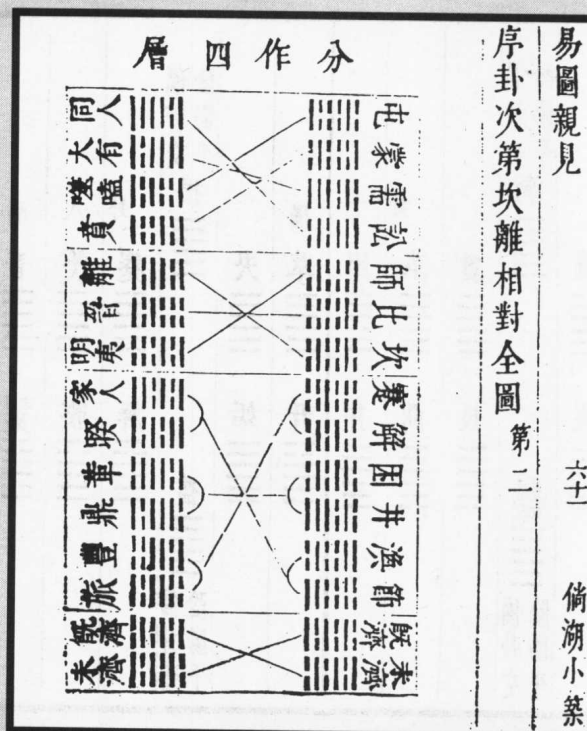 易圖親見
六十一
倘湖小築
序卦次第坎離相對全圖 第二
分作四層
屯 蒙 需 訟
師 比 坎
蹇 解 困 井 渙 節
既濟 未濟
同人 大有 噬嗑 賁
離 晉 明夷
家人 睽 革 鼎 豐 旅
既濟 未濟